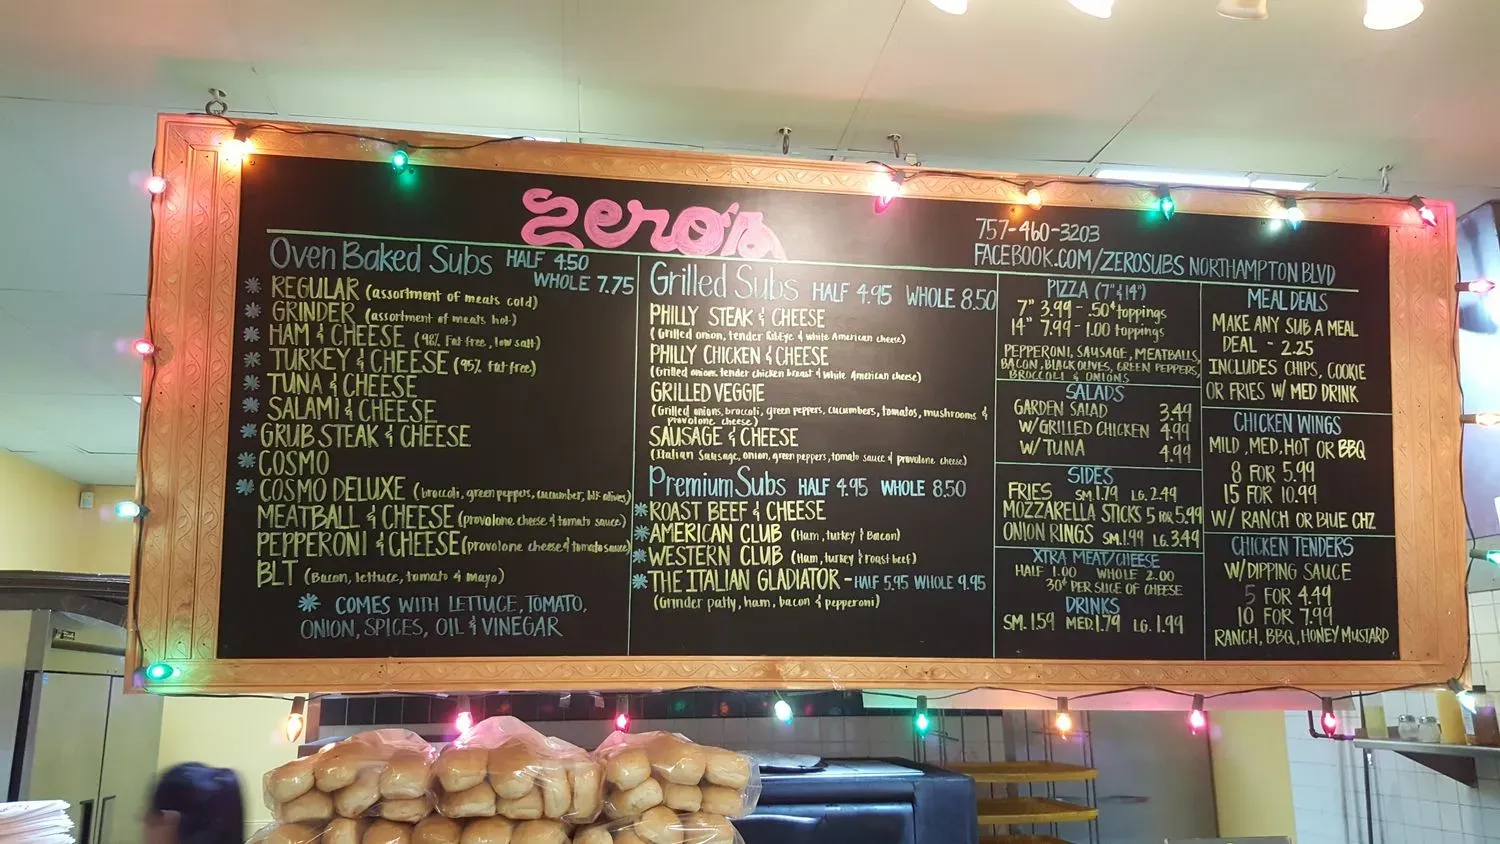 zero's
757-460-3203
FACEBOOK.COM/ZEROSUBS NORTHAMPTON BLVD
Oven Baked Subs HALF 4.50
WHOLE 7.75
* REGULAR (assortment of meats cold)
* GRINDER (assortment of meats hot)
* HAM & CHEESE (98% fat free, low salt)
* TURKEY & CHEESE (95% fat free)
* TUNA & CHEESE
* SALAMI & CHEESE
* GRUB STEAK & CHEESE
* COSMO
* COSMO DELUXE (broccoli, green peppers, cucumber, blk olives)
MEATBALL & CHEESE (provolone cheese & tomato sauce)
PEPPERONI & CHEESE (provolone cheese & tomato sauce)
BLT (Bacon, lettuce, tomato & mayo)
* COMES WITH LETTUCE, TOMATO,
ONION, SPICES, OIL & VINEGAR
Grilled Subs HALF 4.95 WHOLE 8.50
PHILLY STEAK & CHEESE
(Grilled onion, tender RibEye & white American cheese)
PHILLY CHICKEN & CHEESE
(Grilled onions, tender chicken breast & white American cheese)
GRILLED VEGGIE
(Grilled onions, broccoli, green peppers, cucumbers, tomatos, mushrooms &
provolone cheese)
SAUSAGE & CHEESE
(Italian Sausage, onion, green peppers, tomato sauce & provolone cheese)
Premium Subs HALF 4.95 WHOLE 8.50
* ROAST BEEF & CHEESE
* AMERICAN CLUB (Ham, turkey & Bacon)
* WESTERN CLUB (Ham, turkey & roast beef)
* THE ITALIAN GLADIATOR - HALF 5.95 WHOLE 9.95
(Grinder patty, ham, bacon & pepperoni)
PIZZA (7" & 14")
7" 3.99 - .50¢ toppings
14" 7.99 - 1.00 toppings
PEPPERONI, SAUSAGE, MEATBALLS,
BACON, BLACK OLIVES, GREEN PEPPERS,
BROCCOLI & ONIONS
SALADS
GARDEN SALAD 3.49
W/GRILLED CHICKEN 4.99
W/TUNA 4.99
SIDES
FRIES SM 1.79 LG. 2.49
MOZZARELLA STICKS 5 FOR 5.99
ONION RINGS SM. 1.99 LG. 3.49
XTRA MEAT/CHEESE
HALF 1.00 WHOLE 2.00
30¢ PER SLICE OF CHEESE
DRINKS
SM. 1.59 MED 1.79 LG. 1.99
MEAL DEALS
MAKE ANY SUB A MEAL
DEAL - 2.25
INCLUDES CHIPS, COOKIE
OR FRIES W/ MED DRINK
CHICKEN WINGS
MILD, MED, HOT OR BBQ
8 FOR 5.99
15 FOR 10.99
W/ RANCH OR BLUE CHZ
CHICKEN TENDERS
W/DIPPING SAUCE
5 FOR 4.49
10 FOR 7.99
RANCH, BBQ, HONEY MUSTARD